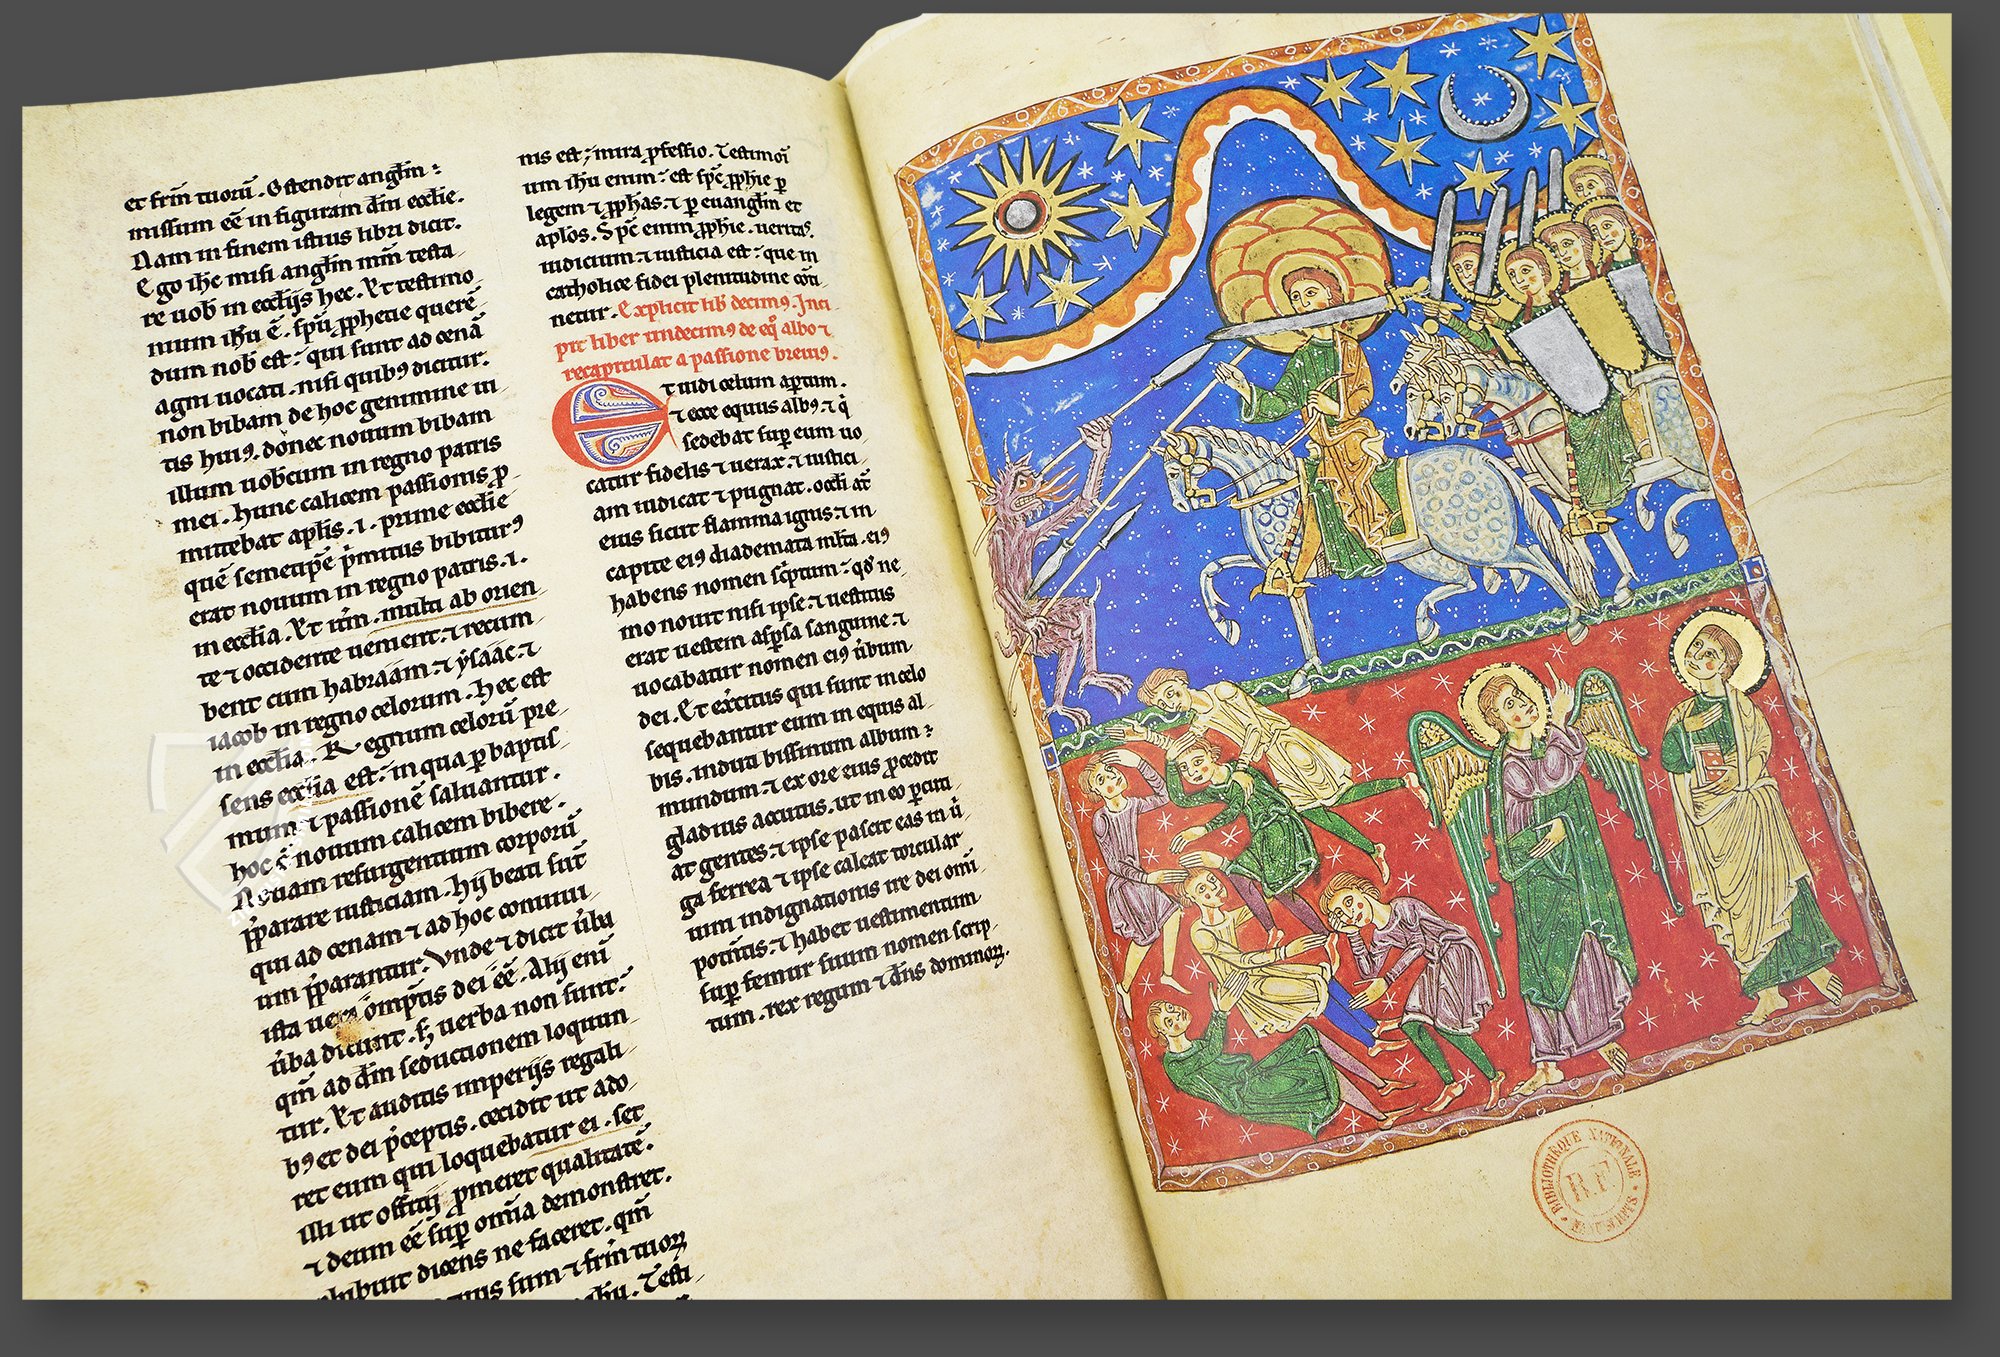 et frm̄ tuorū. Ostendit anglm̄
missum eē in figuram dm̄ ecclie.
Nam in finem istius libri dicit.
Ego ihc misi anglm̄ mm̄ testa
re uob in ecclijs hec. Et testimo
nium ihu ē. spū prophetie querē
dum nob est: qui sunt ad cenā
agni uocati. nisi quibꝯ dicitur.
non bibam de hoc genimine ui
tis huiꝯ. donec nouum bibam
illum uobcum in regno patris
mei. hunc calicem passionis p
mittebat aplis. i. prime ecclie
quē semetipē pmitus bibiturꝯ
erat nouum in regno patris. i.
in ecclia. Et itm̄. multi ab orien
te ⁊ occidente uenient. ⁊ recum
bent cum habraām. ⁊ ysaāc. ⁊
iacob in regno celorum. Hec est
in ecclia. Regnum celorū pre
sens ecclia est: in qua p baptis
mum ⁊ passionē saluantur.
hoc ē nouum calicem bibere.
⁊ suam resurgentium corporū
pparare iusticiam. Hij beati sūt
qui ad cenam ⁊ ad hoc conuiui
um pparantur. Unde ⁊ dicit ūba
ista uera omptis dei eē. Alij enī
ūba dicunt. ſꝫ uerba non sunt.
qm̄ ad dm̄ seductionem loquun
tur. Et auditis imperijs regali
bꝯ et dei pceptis. cecidit ut ado
ret eum qui loquebatur ei. set
illi ut officij pmeret qualitatē.
⁊ deum eē sup omīa demonstret.
phibuit dicens ne faceret. qm̄
sum ⁊ frm̄ tuoꝝ
ihu. Testi
nis est; mira pfessio. Testimoī
um ihu enim: est spc pphie p
legem ⁊ pphas. ⁊ p euanglm̄ et
aplos. Spc enim pphie. ueritas.
iudicium ⁊ iusticia est: que in
catholice fidei plenitudine cōti
netur. Explicit lib decimꝯ. Inci
pit liber undecimꝯ de eq albo ⁊
recapitulat a passione breuiꝯ.
Et uidi celum aptum.
⁊ ecce equus albꝯ. ⁊ q
sedebat sup eum uo
catur fidelis ⁊ uerax. ⁊ iustici
am iudicat ⁊ pugnat. occli aт̄
eius sicut flamma ignis. ⁊ in
capite eiꝯ diademata mlta. eiꝯ
habens nomen scptum: qd ne
mo nouit nisi ipse. ⁊ uestitus
erat uestem aspsa sanguine. ⁊
uocabatur nomen eiꝯ ūbum
dei. Et exercitus qui sunt in celo
sequebantur eum in equis al
bis. induti bissinum album:
mundum. ⁊ ex ore eius pcedit
gladius accutus. ut in eo pcuti
at gentes. ⁊ ipse pascit eas in ū
ga ferrea ⁊ ipse calcat torcular
uini indignationis ire dei omī
potētis. ⁊ habet uestimentum
sup femur suum nomen scrip
tum. rex regum ⁊ dns dominoꝝ.
BIBLIOTHÈQUE NATIONALE
R.F.
MANUSCRITS